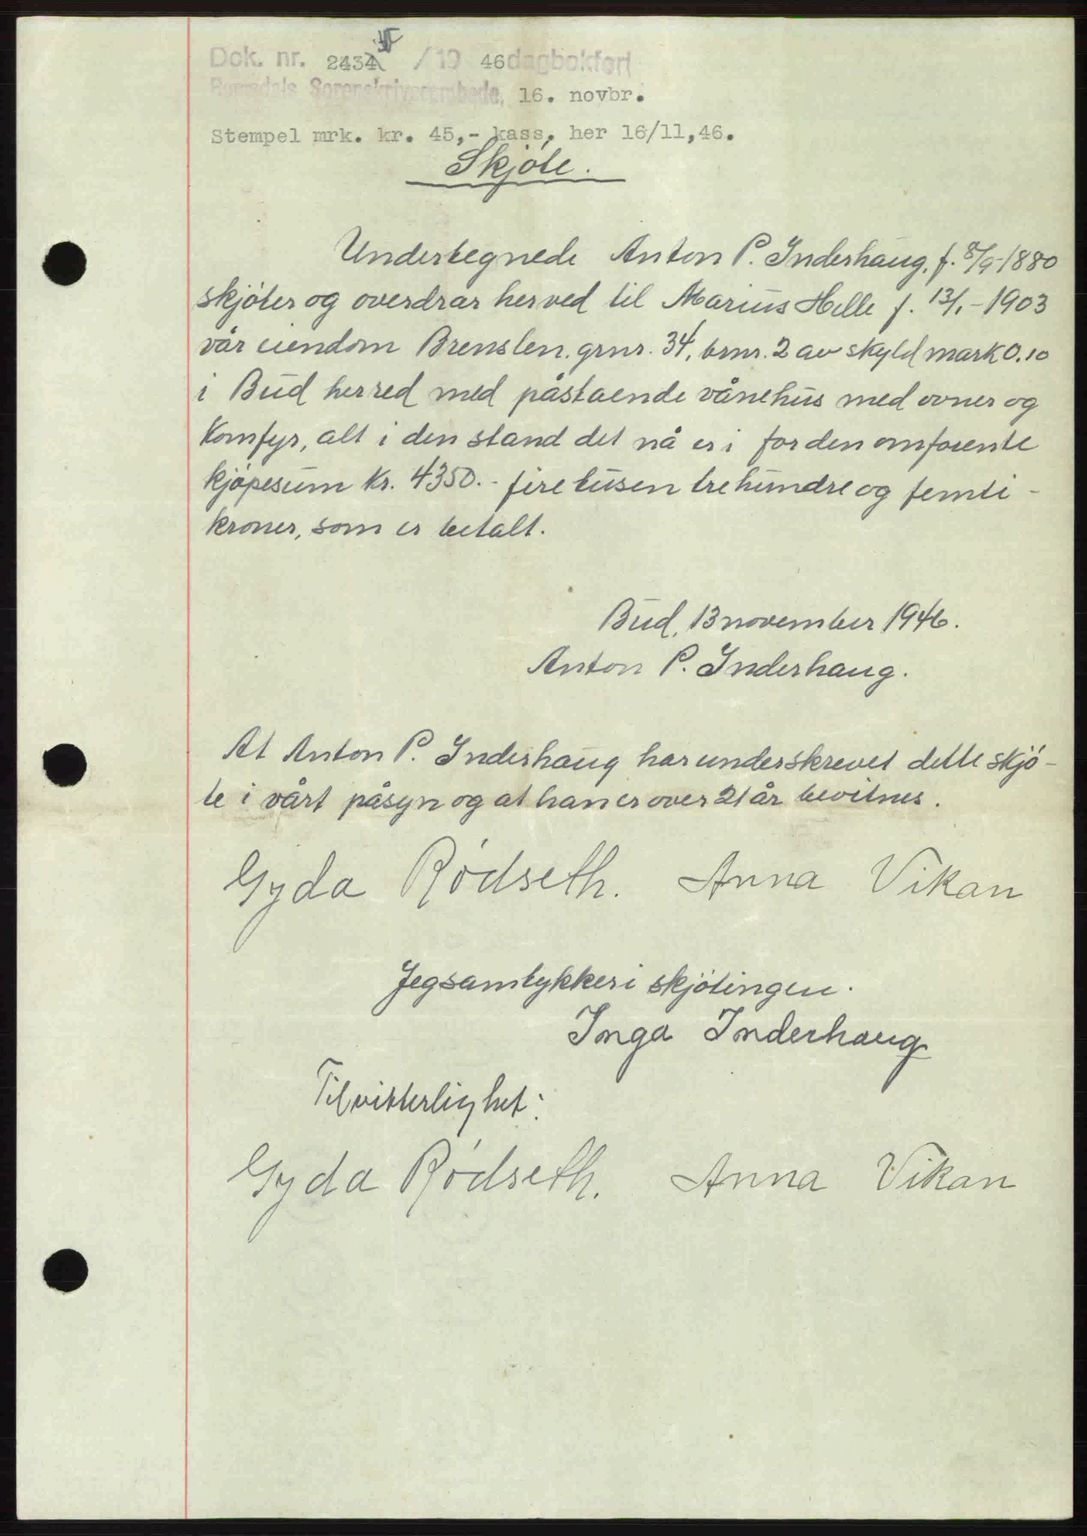 Dok. nr. 2434 / 19 46 dagbokført
Romsdals Sorenskriverembede, 16. novbr.
Stempel mrk. kr. 45,- kass. her 16/11,46.
Skjöte.
Undertegnede Anton P. Inderhaug, f. 8/9-1880
skjöter og overdrar herved til Marius Helle f. 13/1.-1903
vår eiendom Brenslen. grnr. 34, brnr. 2 av skyld mark 0.10
i Bud herred med påstaende vånehus med ovner og
komfyr, alt i den stand det nå er i for den omforente
kjöpesum Kr. 4350.- fire tusen tre hundre og femti -
kroner, som er betalt.
Bud, 13 november 1946.
Anton P. Inderhaug.
At Anton P. Inderhaug har underskrevet dette skjö-
te i vårt påsyn og at han er over 21 år bevitnes.
Gyda Rödseth. Anna Vikan
Jeg samtykker i skjötingen.
Inga Inderhaug
Til vitterlighet:
Gyda Rödseth. Anna Vikan